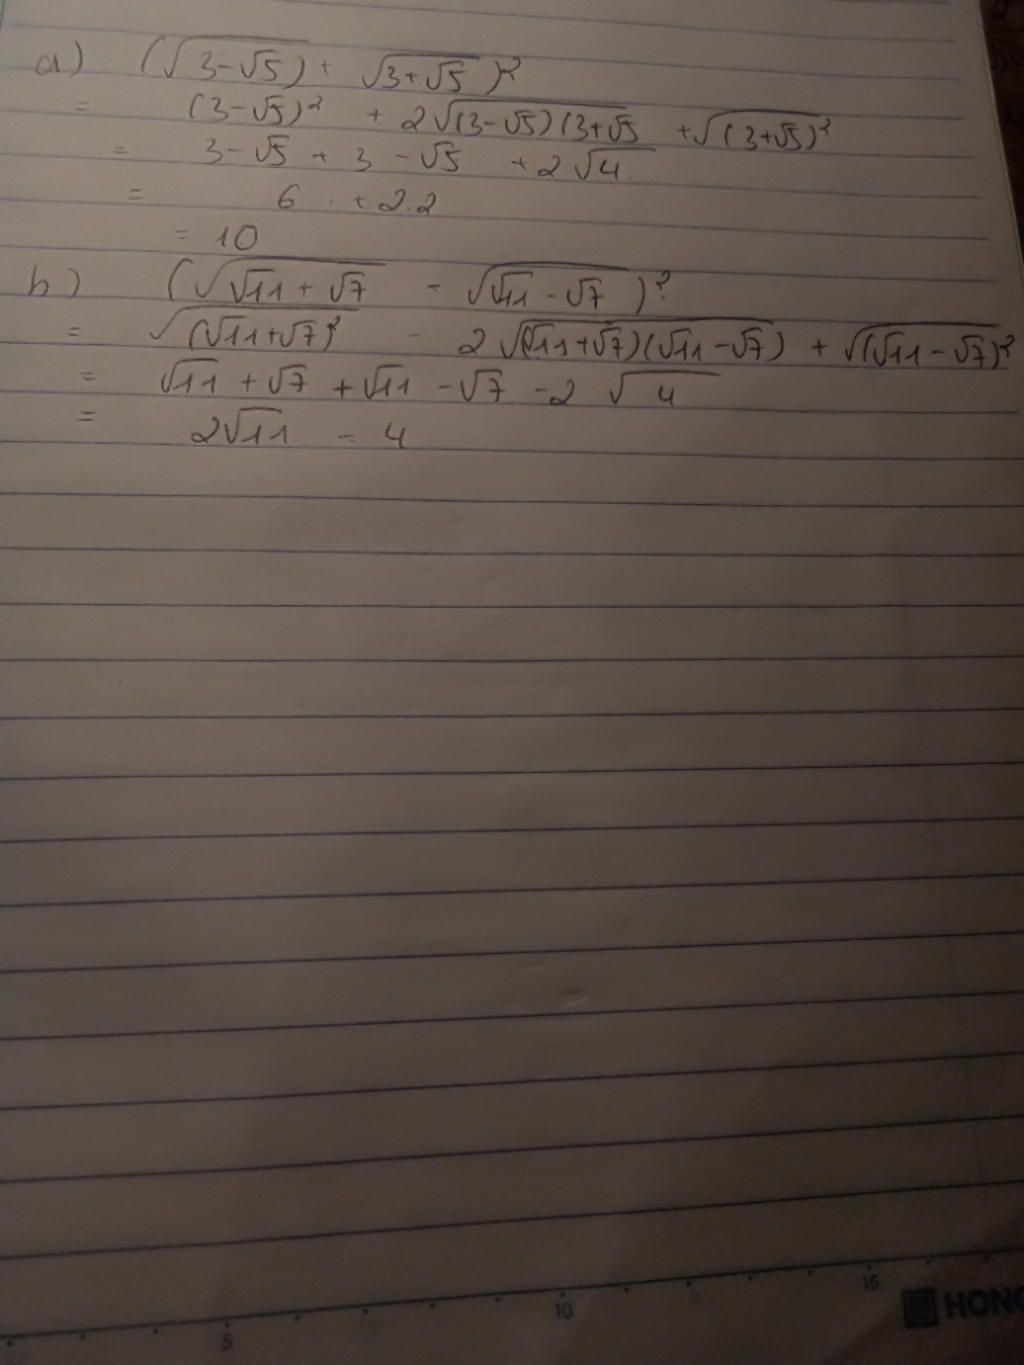 a) (√(3-√5) + √(3+√5))²
= (3-√5)² + 2√((3-√5)(3+√5 + √((3+√5)²
= 3-√5 + 3-√5 + 2√4
= 6 + 2.2
= 10
b) (√(√11+√7) - √(√11-√7))²
= √((√11+√7)² - 2√((√11+√7)(√11-√7)) + √((√11-√7)²)
= √11 + √7 + √11 - √7 - 2√4
= 2√11 - 4
5 10 15
HONG